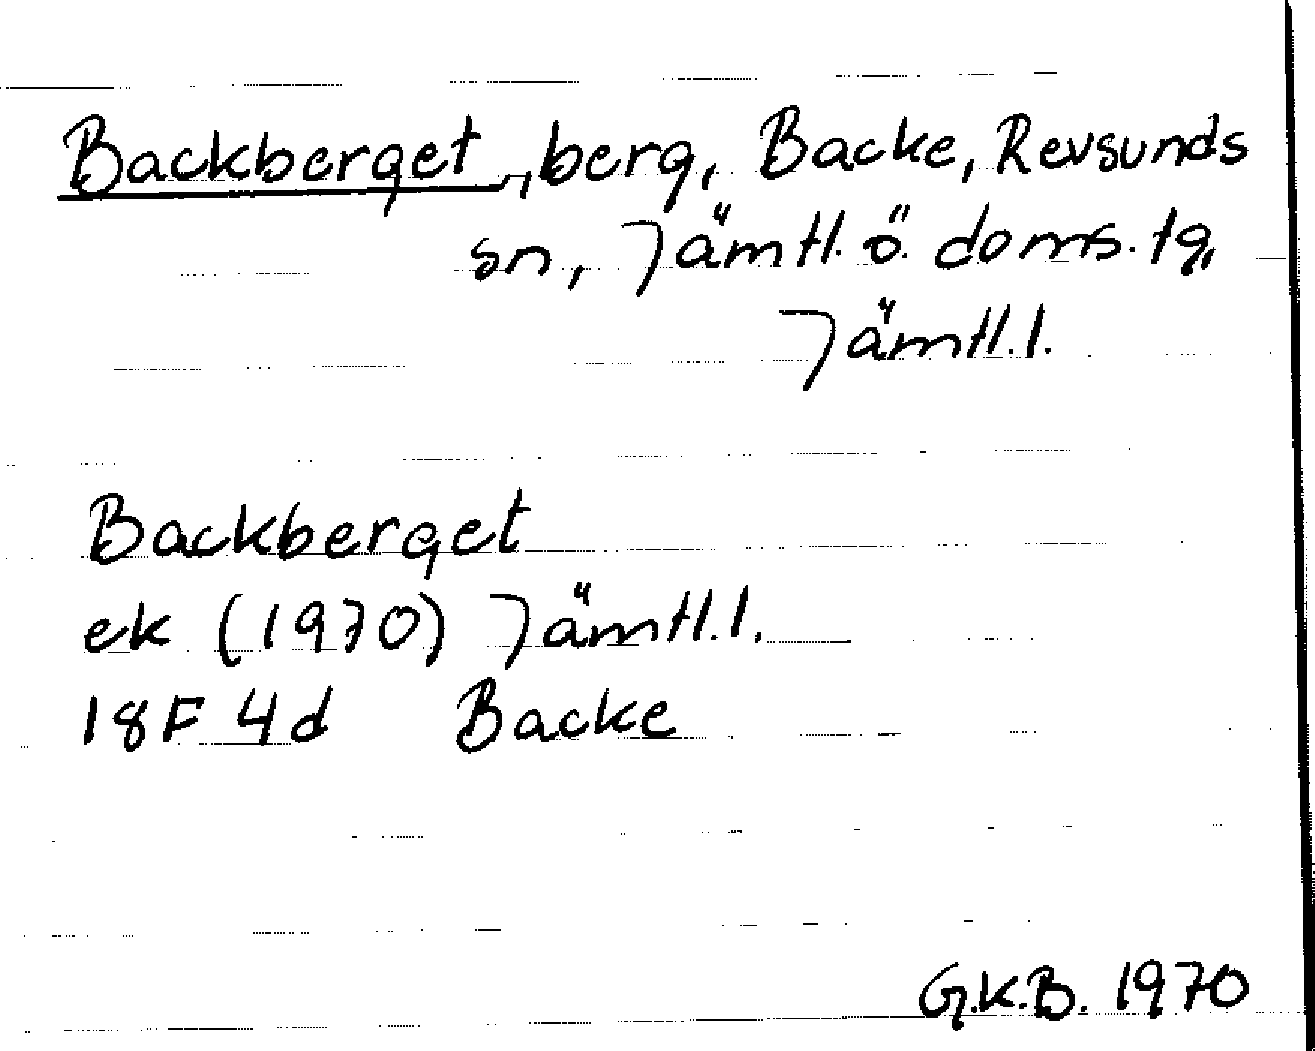 Backberget, berg, Backe, Revsunds
sn, Jämtl. ö. doms. tg,
Jämtl. l.
Backberget
ek (1970) Jämtl. l.
18F 4d Backe
G.K.B. 1970